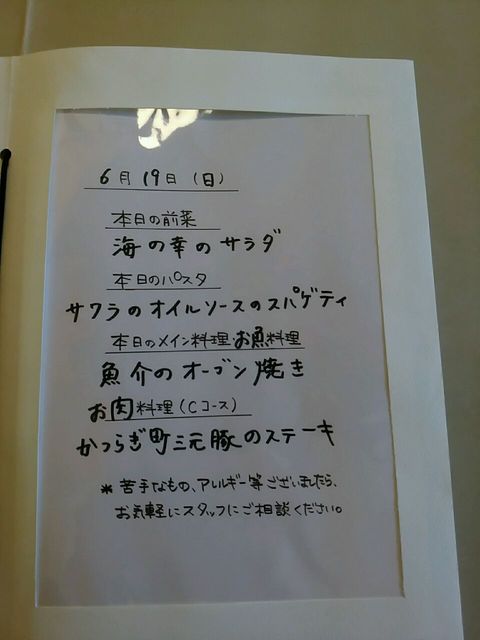 6月19日(日)
本日の前菜
海の幸のサラダ
本日のパスタ
サワラのオイルソースのスパゲティ
本日のメイン料理お魚料理
魚介のオーブン焼き
お肉料理(Cコース)
かつらぎ町三元豚のステーキ
*苦手なもの、アレルギー等ございましたら、
お気軽にスタッフにご相談ください。